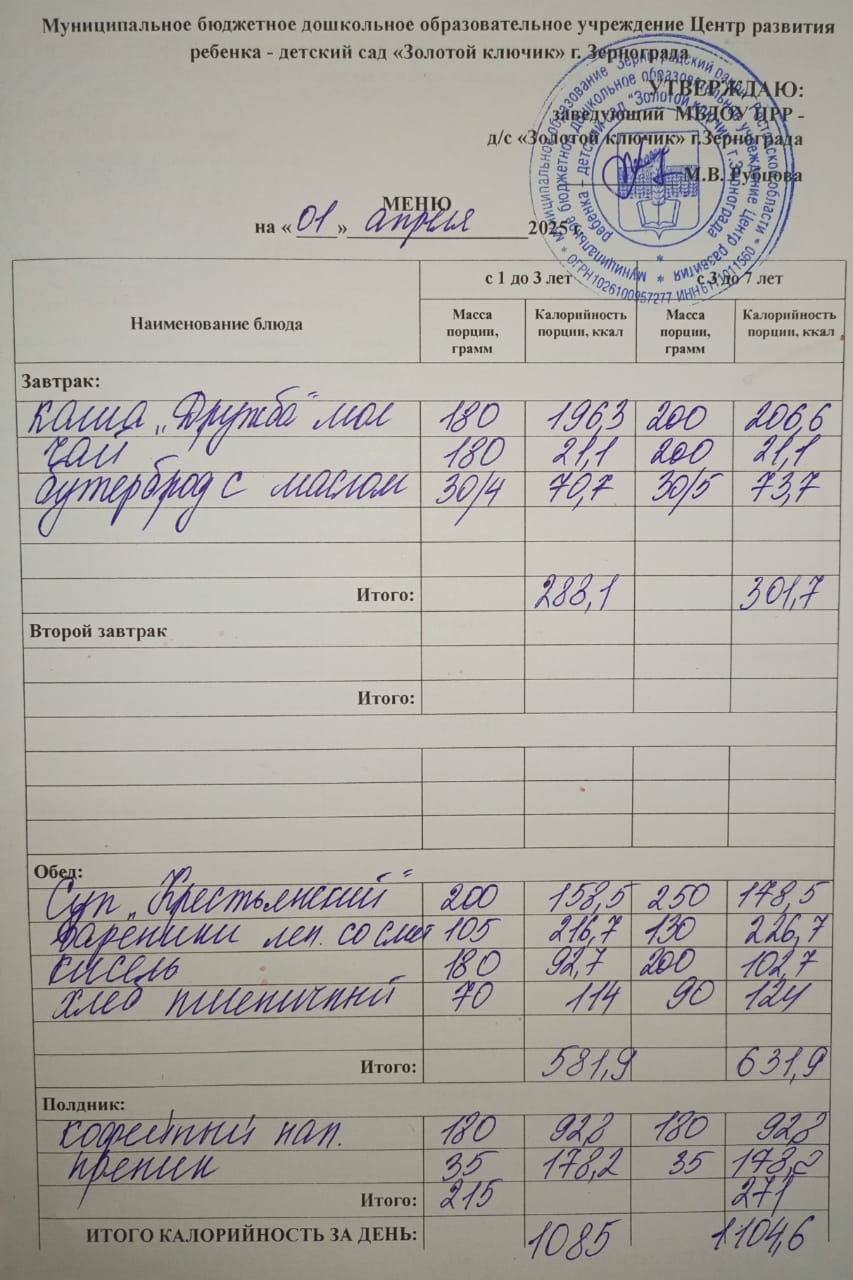 Муниципальное бюджетное дошкольное образовательное учреждение Центр развития
ребенка - детский сад «Золотой ключик» г. Зернограда
УТВЕРЖДАЮ:
заведующий МБДОУ ЦРР -
д/с «Золотой ключик» г.Зернограда
М.В. Рубцова
МЕНЮ
на « 01 » апреля 2025 г.
с 1 до 3 лет с 3 до 7 лет
Наименование блюда Масса порции, грамм Калорийность порции, ккал Масса порции, грамм Калорийность порции, ккал
Завтрак:
каша „Дружба" мол 180 196,3 200 206,6
чай 180 21,1 200 21,1
бутерброд с маслом 30/4 70,7 30/5 73,7
Итого: 288,1 301,7
Второй завтрак
Итого:
Обед:
Суп „Крестьянский" 200 158,5 250 178,5
вареники лен. со смет 105 216,7 130 226,7
кисель 180 92,7 200 102,7
хлеб пшеничный 70 114 90 124
Итого: 581,9 631,9
Полдник:
кофейный нап. 180 92,8 180 92,8
пряник 35 178,2 35 178,2
Итого: 215 271
ИТОГО КАЛОРИЙНОСТЬ ЗА ДЕНЬ: 1085 1104,6